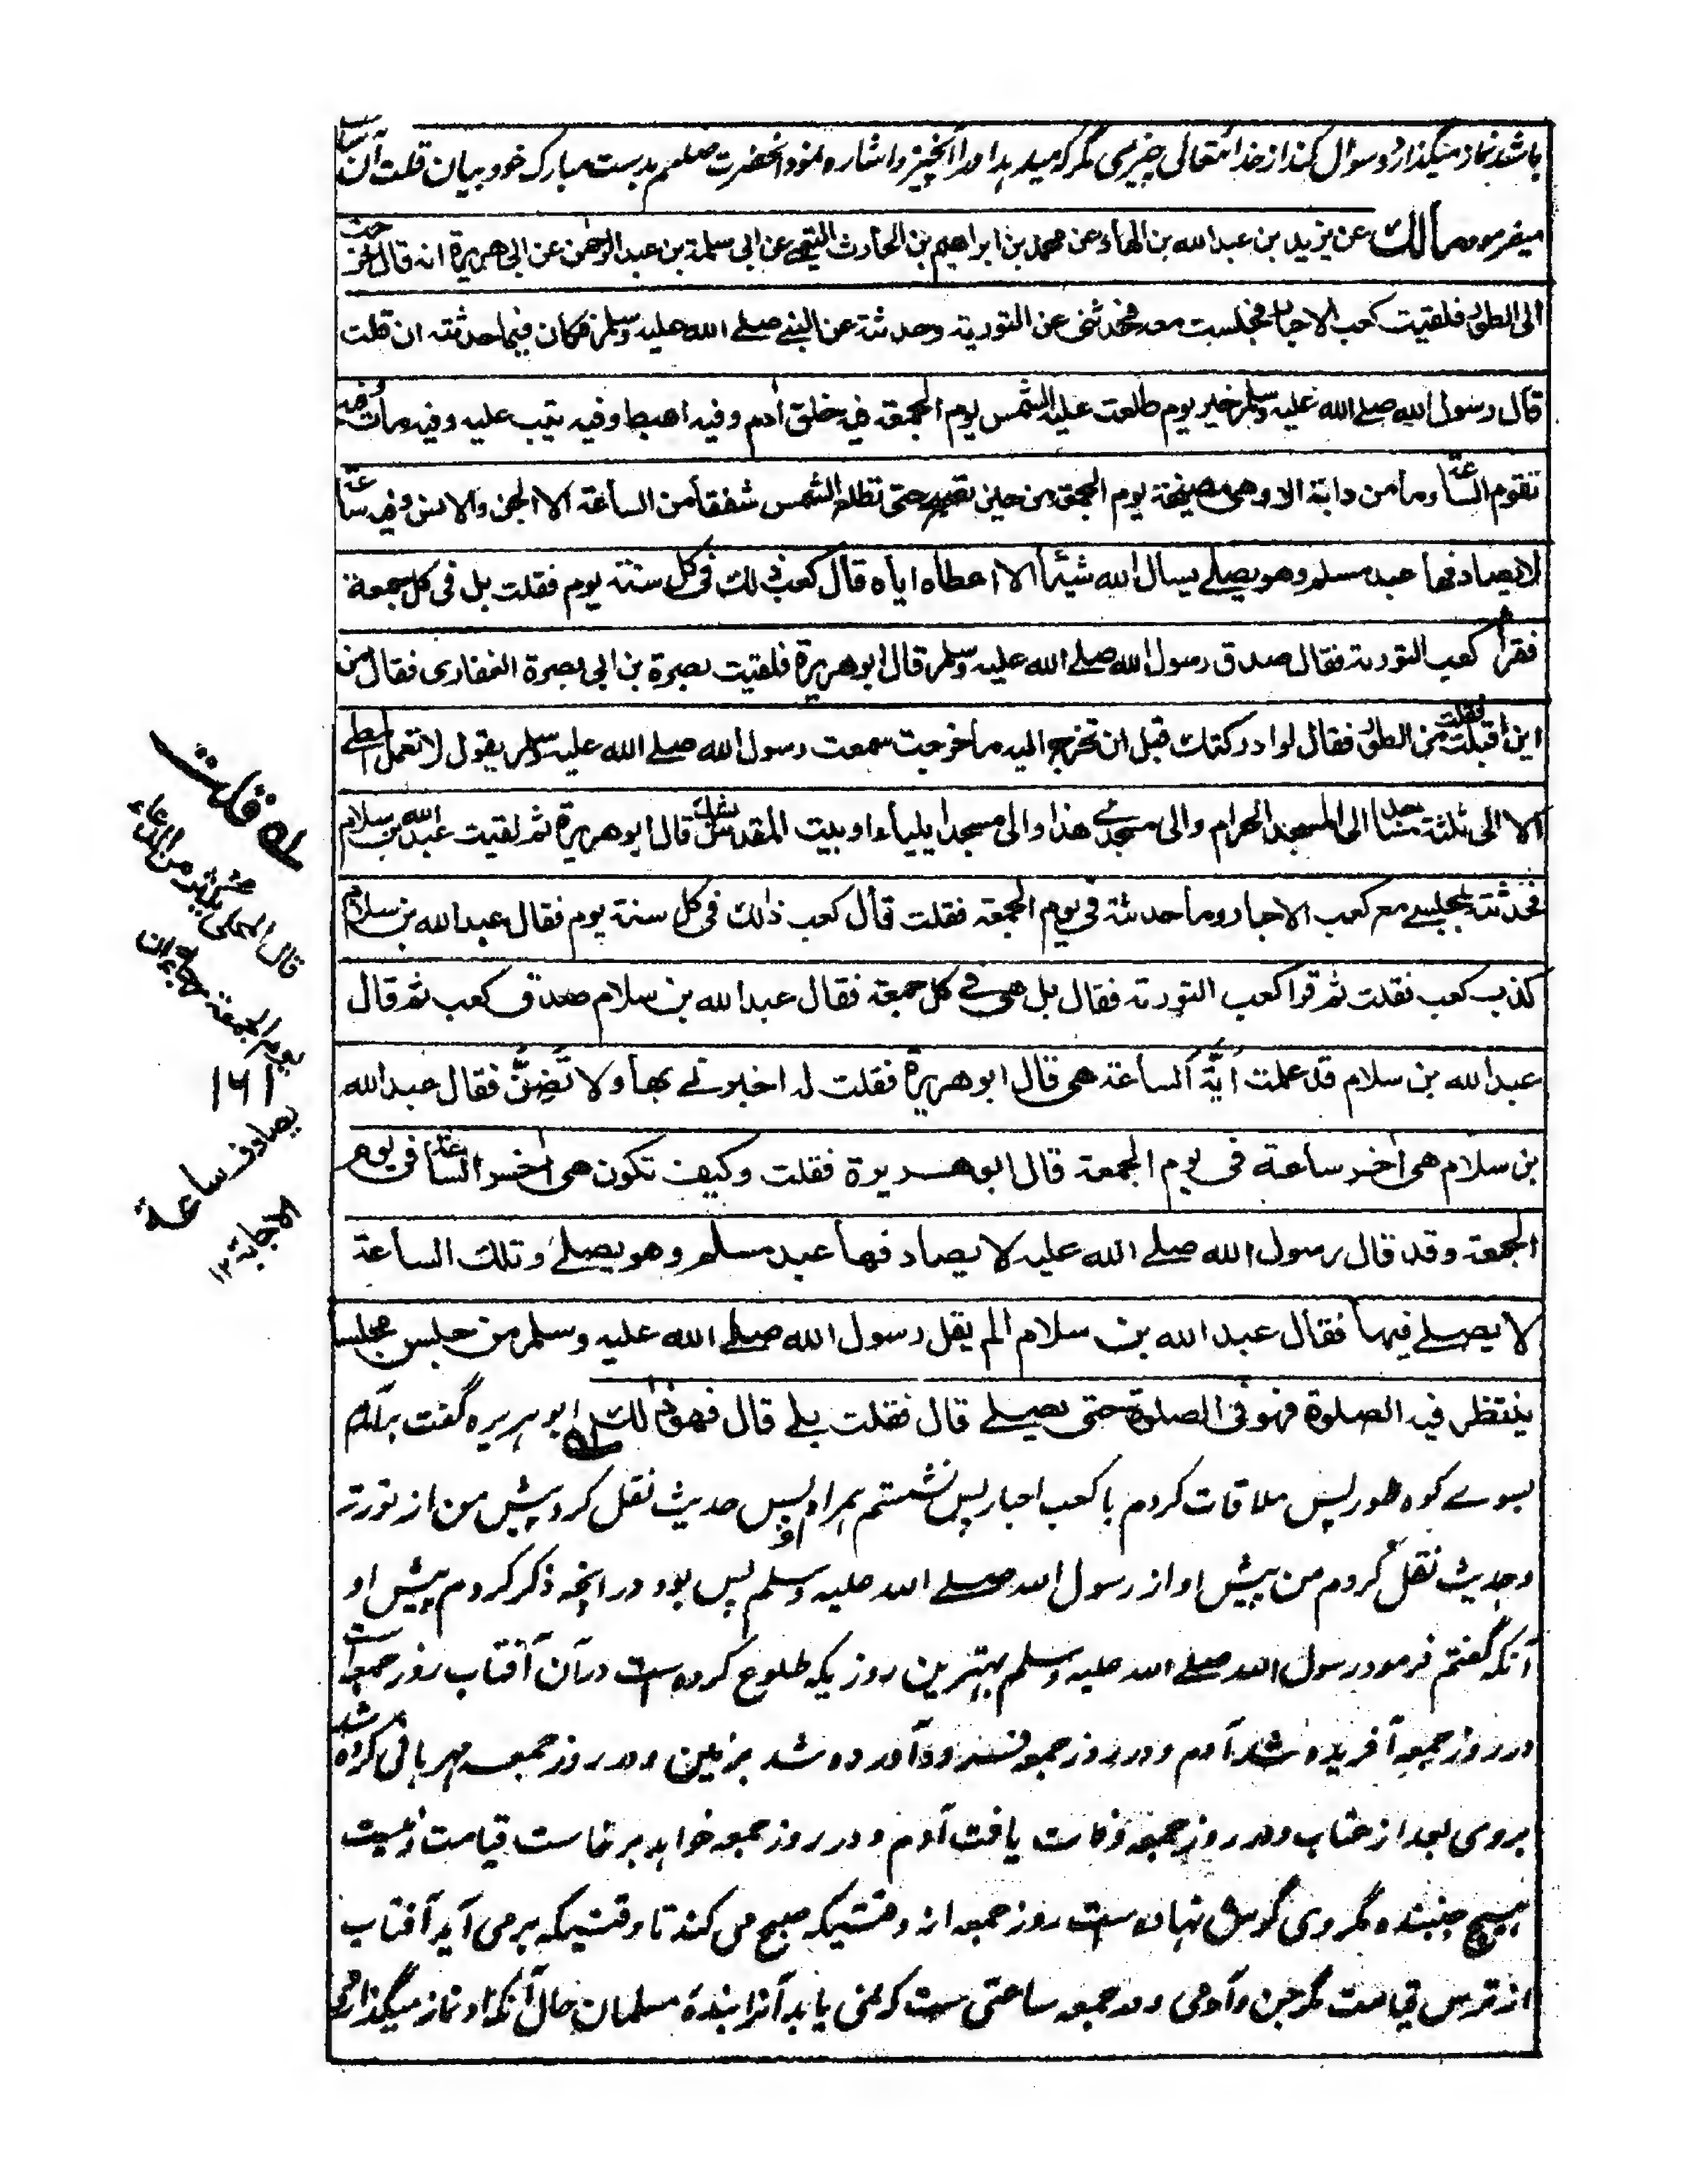 باشد نماز میگذارد و سوال کند از خدا تعالی چیزی مگر که میدهد او را آنچیز و اشاره نمود آنحضرت صلعم بدست مبارک خود بیان قلت آن ساعت
میفرمود مالك عن يزيد بن عبد الله بن الهاد عن محمد بن ابراهيم بن الحارث التيمي عن ابي سلمة بن عبد الرحمن عن ابي هريرة انه قال خرجت
الى الطور فلقيت كعب الاحبار فجلست معه فحدثني عن التورية وحدثته عن النبي صلے الله عليه وسلم فكان فيما حدثته ان قلت
قال رسول الله صلے الله عليه وسلم خير يوم طلعت عليه الشمس يوم الجمعة فيه خلق آدم وفيه اهبط وفيه تيب عليه وفيه مات وفيه
تقوم الساعة وما من دابة الا وهى مصيخة يوم الجمعة من حين تصبح حتى تطلع الشمس شفقا من الساعة الا الجن والانس وفيه ساعة
لا يصادفها عبد مسلم وهو يصلے يسال الله شيئا الا اعطاه اياه قال كعب ذلك فى كل سنة يوم فقلت بل فى كل جمعة
فقرأ كعب التورية فقال صدق رسول الله صلے الله عليه وسلم قال ابو هريرة فلقيت بصرة بن ابى بصرة الغفارى فقال من
اين اقبلت فقلت من الطور فقال لو ادركتك قبل ان تخرج اليه ما خرجت سمعت رسول الله صلے الله عليه وسلم يقول لا تعمل المطي
الا الى ثلثة مساجد الى المسجد الحرام والى مسجدي هذا والى مسجد ايلياء او بيت المقدس يشك قال ابو هريرة ثم لقيت عبد الله بن سلام
فحدثته بمجلسے مع كعب الاحبار وما حدثته فى يوم الجمعة فقلت قال كعب ذلك فى كل سنة يوم فقال عبد الله بن سلام
كذب كعب فقلت ثم قرا كعب التورية فقال بل هى فے كل جمعة فقال عبد الله بن سلام صدق كعب ثم قال
عبد الله بن سلام قد علمت أيَّةُ الساعة هى قال ابو هريرة فقلت له اخبرنے بها ولا تَضِنَّ فقال عبد الله
بن سلام هى اخر ساعة فى يوم الجمعة قال ابو هريرة فقلت وكيف تكون هى اخر الساعة فى يوم
الجمعة وقد قال رسول الله صلے الله عليه لا يصادفها عبد مسلم وهو يصلے وتلك الساعة
لا يصلے فيها فقال عبد الله بن سلام الم يقل رسول الله صلے الله عليه وسلم من جلس مجلسا
ينتظر فيه الصلوة فهو فى الصلوة حتى يصلے قال فقلت بلے قال فهو ذلك ابو هریره گفت برآمدم
بسوے کوه طور پس ملاقات کردم با کعب احبار پس نشستم همراه او پس حدیث نقل کرد پیش من از توریة
و حدیث نقل کردم من پیش او از رسول الله صلے الله علیه وسلم پس بود در آنچه ذکر کردم پیش او
آنکه گفتم فرمود رسول الله صلے الله علیه وسلم بهترین روزیکه طلوع کرده ست در آن آفتاب روز جمعه است
در روز جمعه آفریده شد آدم و در روز جمعه فرود آورده شد بزمین و در روز جمعه مهربانی کرده شد
بروی بعد از عتاب و در روز جمعه وفات یافت آدم و در روز جمعه خواهد برخاست قیامت و نیست
هیچ جنبنده مگر وی گوش نهاده ست روز جمعه از وقتیکه صبح می کند تا وقتیکه برمی آید آفتاب
از ترس قیامت مگر جن و آدمی و در جمعه ساعتی ست که نمی یابد آنرا بندۀ مسلمان حال آنکه او نماز میگذارد
له قلت
قال المحلى من الدعاء
يوم الجمعة رجاء ان
١٢١
يصادف ساعة
الاجابة ١٢